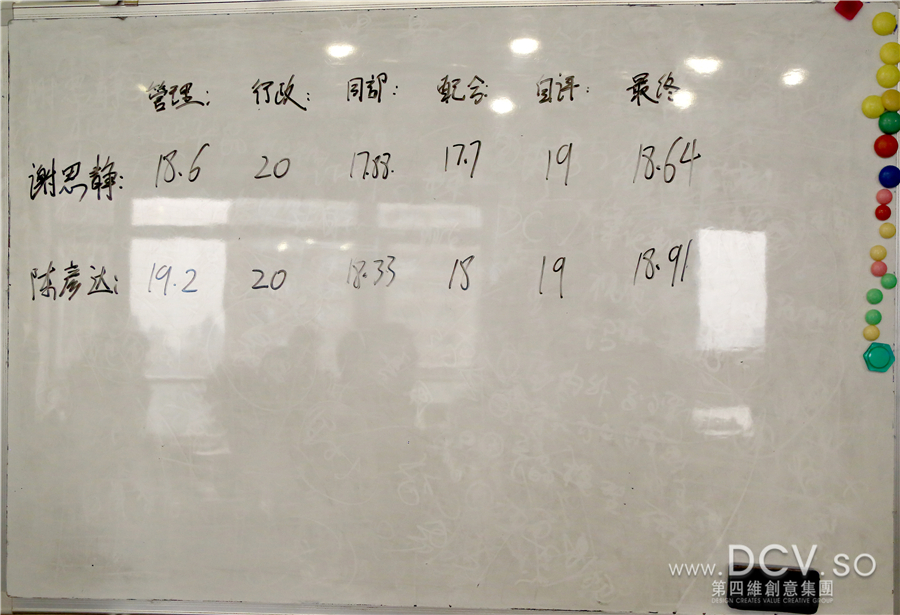 管理: 行政: 同部: 配合: 自评: 最终
谢思静: 18.6 20 17.88. 17.7 19 18.64
陈彦达: 19.2 20 18.33 18 19 18.91
www.DCV.so
第四維創意集團
DESIGN CREATES VALUE CREATIVE GROUP